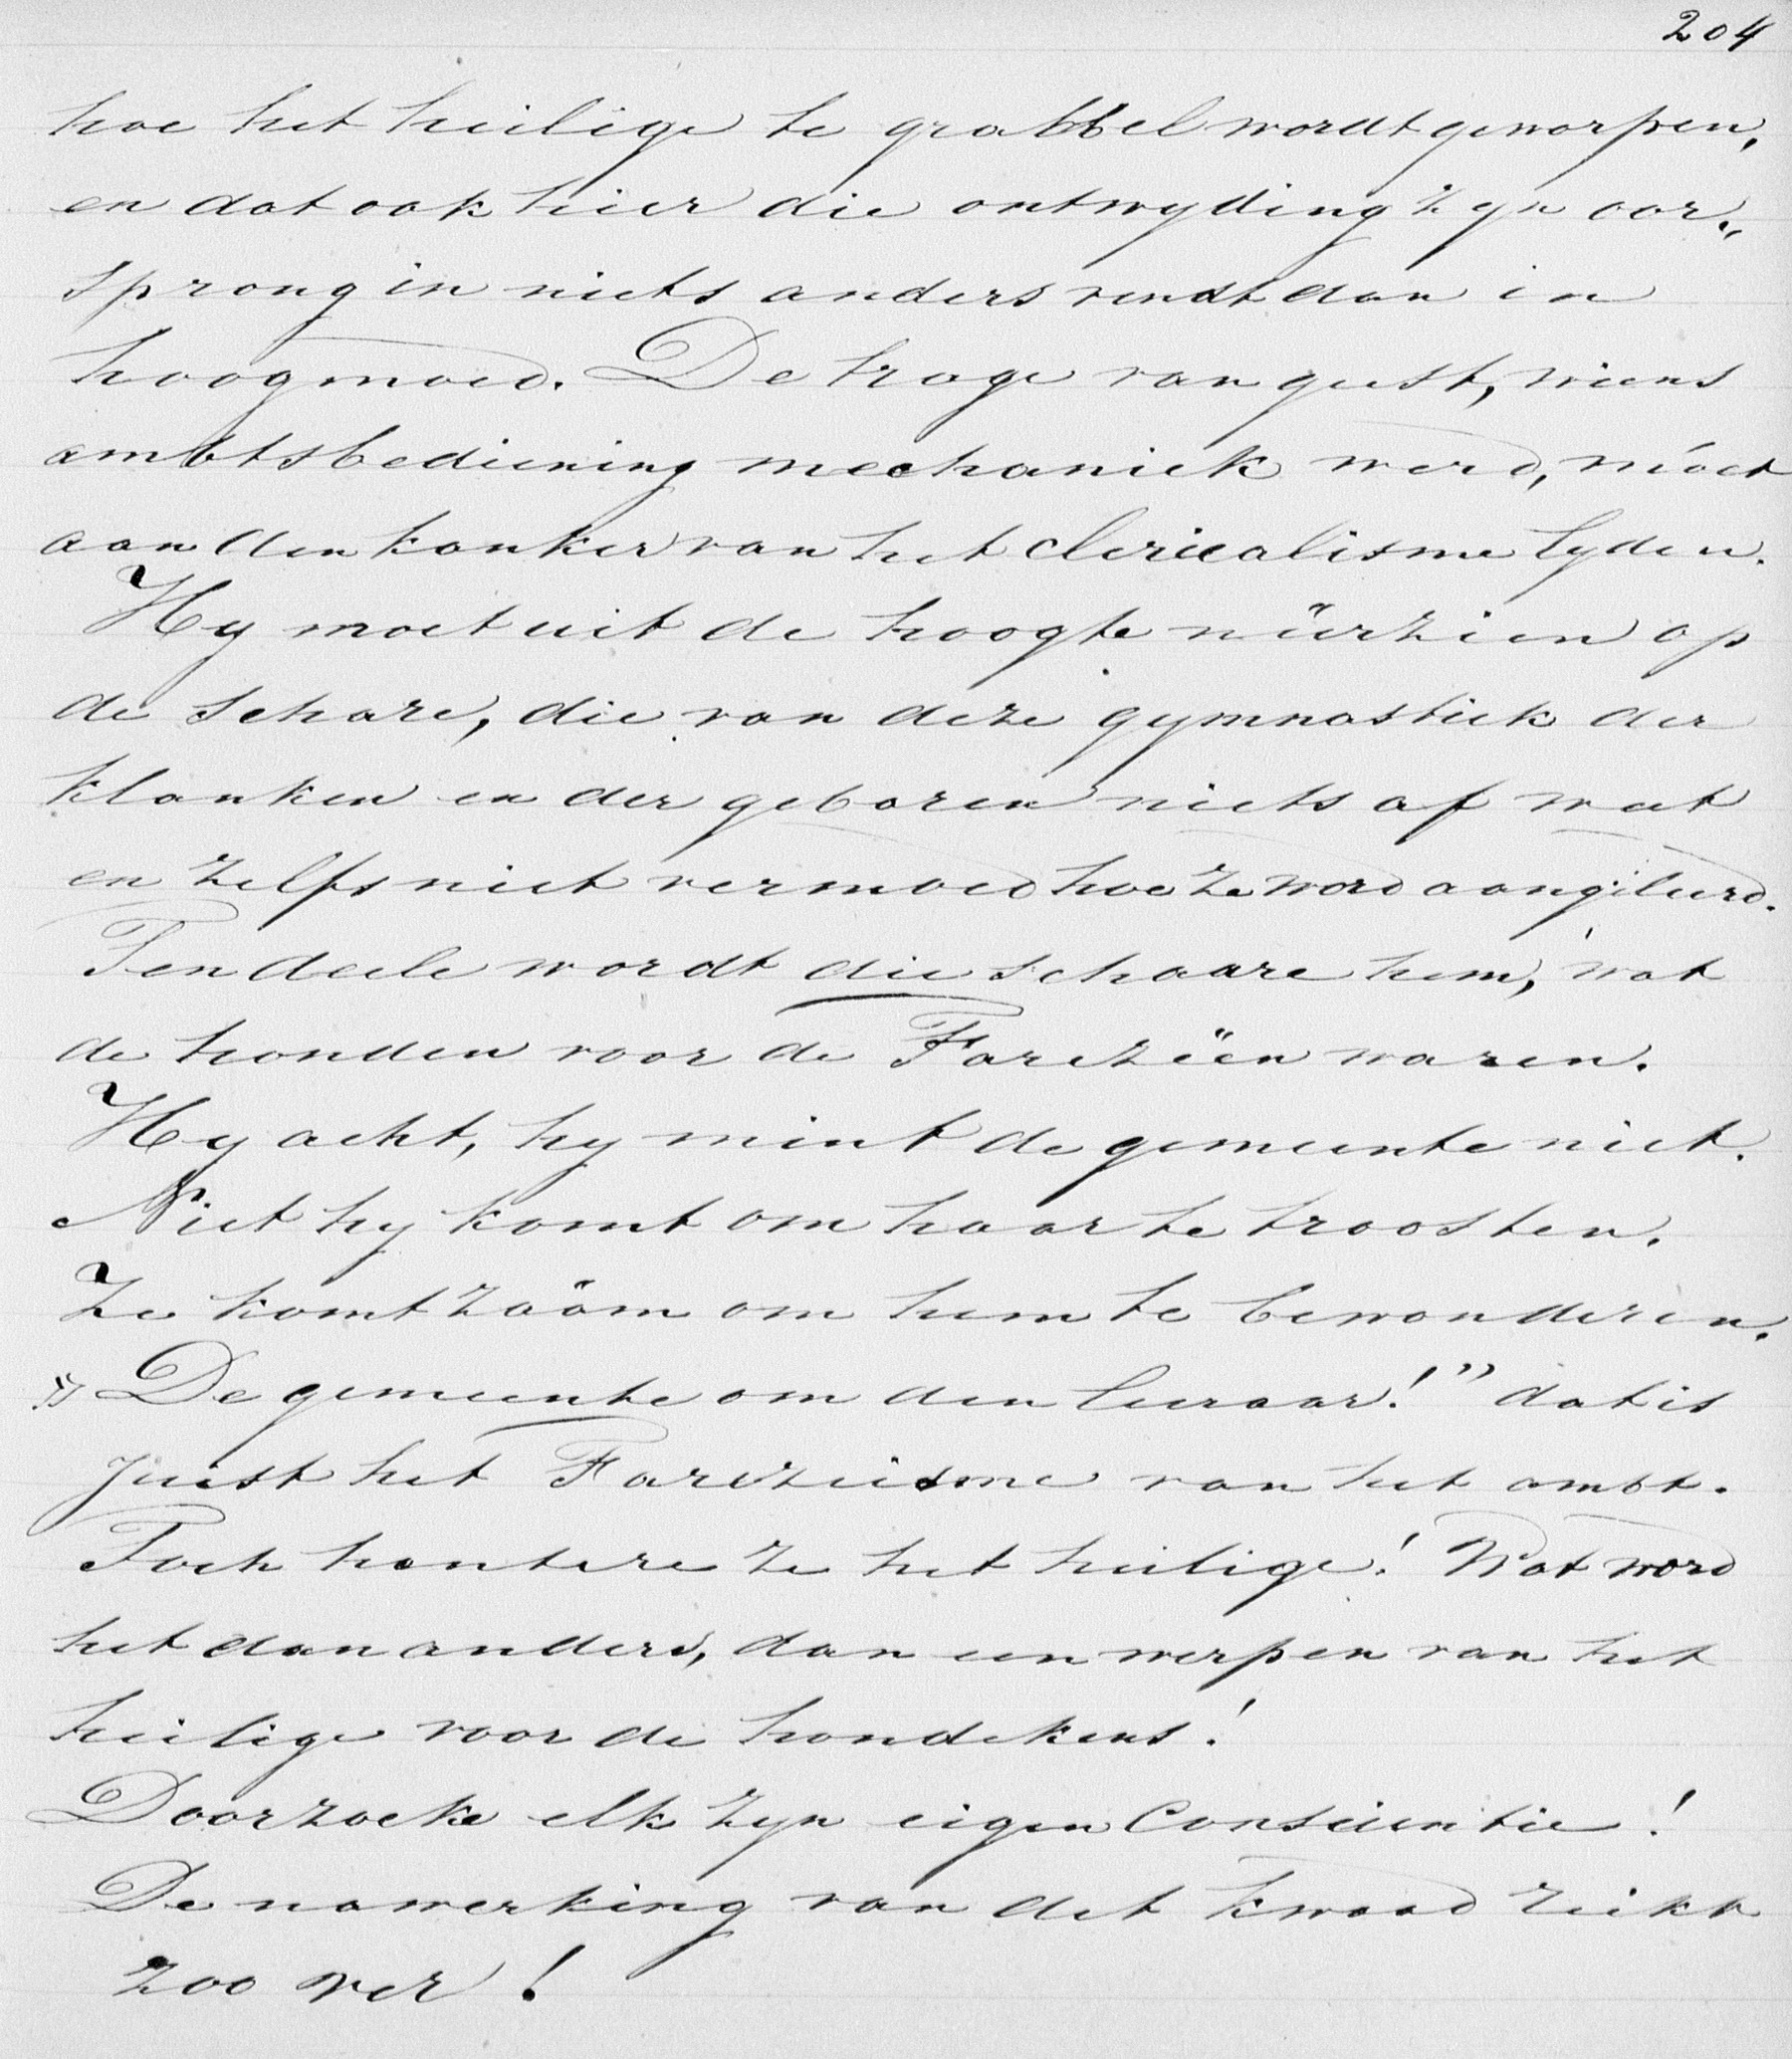 204
hoe het heilige te grabbel wordt geworpen,
en dat ook hier die ontwyding zyn oor„
sprong in niets anders vendt dan in
hoogmoed. De trage van geest, wiens
ambtsbediening mechaniek werd, móet
aan den kanker van het clericalisme lyden.
Hy moet uit de hoogte neêrzien op
de schare, die van deze gymnastiek der
klanken en der gebaren niets af weet
en zelfs niet vermoed hoe ze word aangeleurd.
Ten deele wordt die schaare hem, wat
de honden voor de Farezëen waren.
Hy acht, hy mint de gemeente niet.
Niet hy komt om haar te troosten.
Ze komt zaâm om hem te bewonderen.
„De gemeente om den leeraar!” dat is
juist het Farezeisme van het ambt.
Toch hantere ze het heilige! Wat word
het dan anders, dan een werpen van het
heilige voor de hondekens!
Doorzoeke elk zyn eigen Consciëntie!
De nawerking van det kwaad reikt
zoo ver!